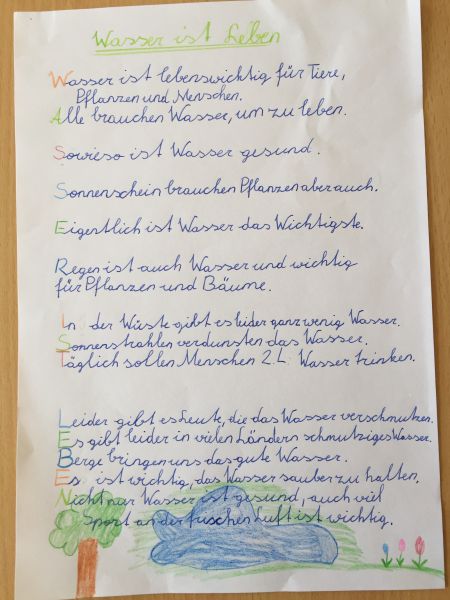 Wasser ist Leben
Wasser ist lebenswichtig für Tiere,
Pflanzen und Menschen.
Alle brauchen Wasser, um zu leben.
Sowieso ist Wasser gesund.
Sonnenschein brauchen Pflanzen aber auch.
Eigentlich ist Wasser das Wichtigste.
Regen ist auch Wasser und wichtig
für Pflanzen und Bäume.
In der Wüste gibt es leider ganz wenig Wasser.
Sonnenstrahlen verdunsten das Wasser.
Täglich sollen Menschen 2 L Wasser trinken.
Leider gibt es Leute, die das Wasser verschmutzen.
Es gibt leider in vielen Ländern schmutziges Wasser.
Berge bringen uns das gute Wasser.
Es ist wichtig, das Wasser sauber zu halten.
Nicht nur Wasser ist gesund, auch viel
Sport an der frischen Luft ist wichtig.